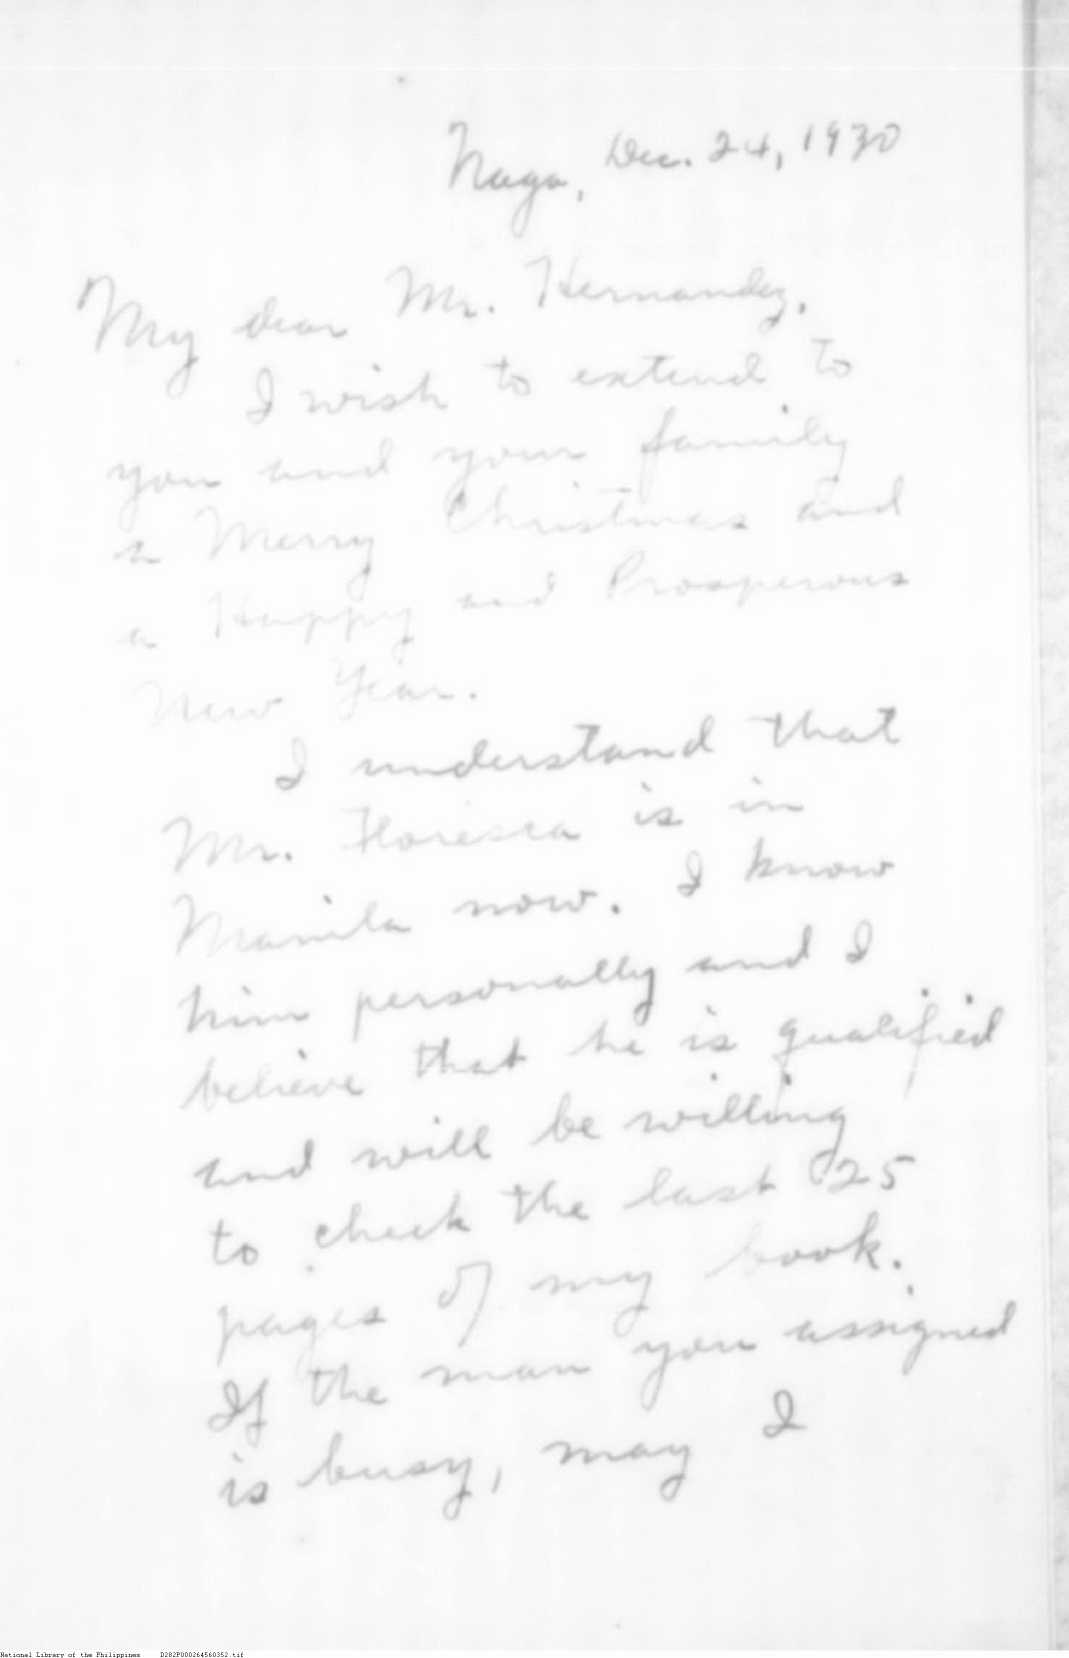 Naga, Dec. 24, 1930
My dear Mr. Hernandez,
I wish to extend to
you and your family
a Merry Christmas and
a Happy and Prosperous
New Year.
I understand that
Mr. Floresca is in
Manila now. I know
him personally and I
believe that he is qualified
and will be willing
to check the last 25
pages of my book.
If the man you assigned
is busy, may I
National Library of the Philippines D282P000264560352.tif